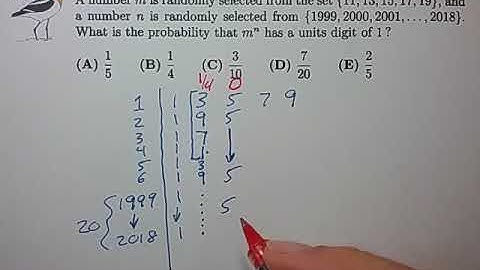 A number m is randomly selected from the set {11, 13, 15, 17, 19}, and
a number n is randomly selected from {1999, 2000, 2001, . . . , 2018}.
What is the probability that mⁿ has a units digit of 1?
(A) 1/5 (B) 1/4 (C) 3/10 (D) 7/20 (E) 2/5
1/4 0
1 1 3 5 7 9
2 1 9 5
3 1 7
4 1 1
5 1 3
6 1 9 5
20 1999 1 5
2018 1